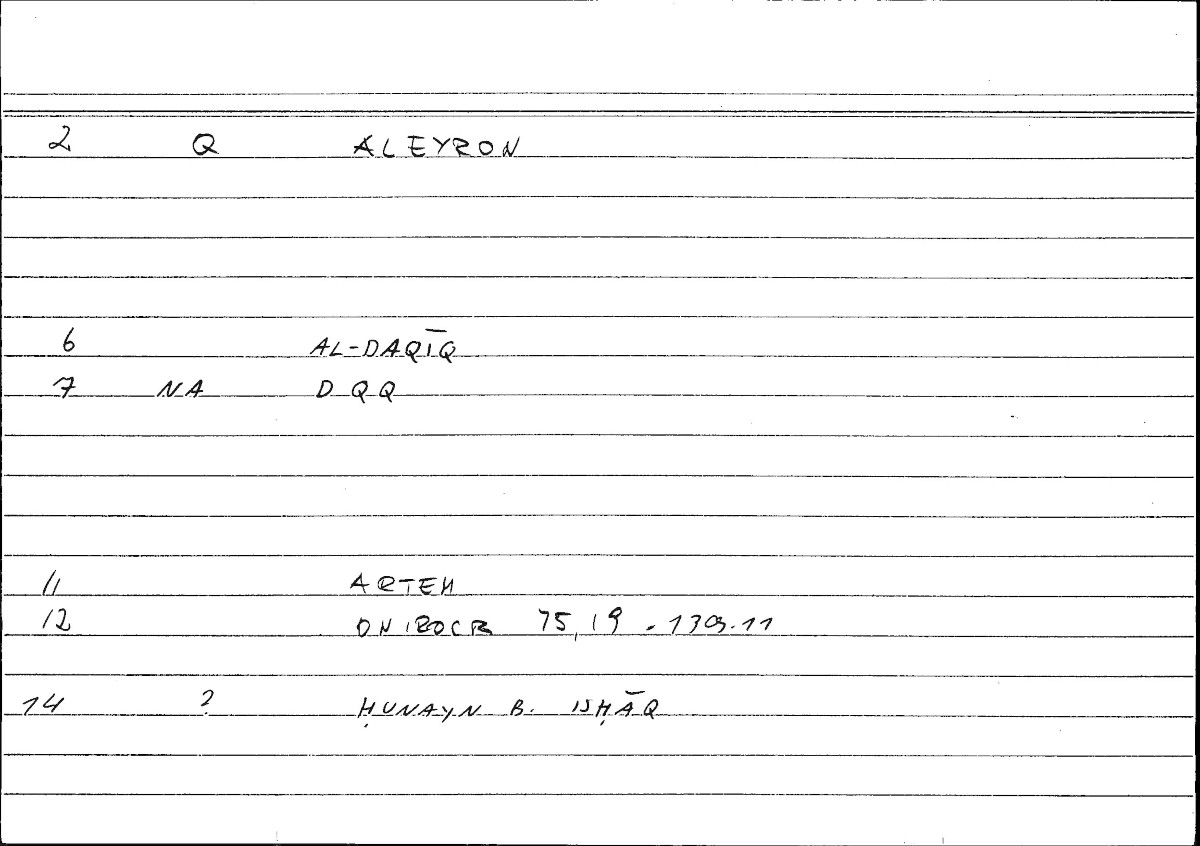 2 Q ALEYRON
6 AL-DAQĪQ
7 NA DQQ
11 ARTEM
12 ONIROCR 75,19 - 139.11
14 ? ḤUNAYN B. ISḤĀQ